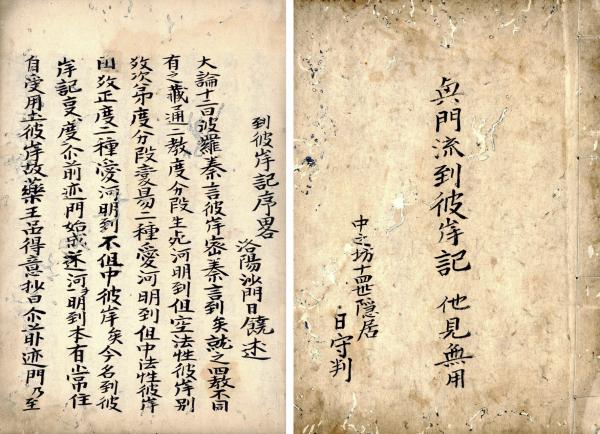 眞門流到彼岸記 他見無用
中之坊十四世隠居
日守判
到彼岸記序畧
洛陽沙門日饒述
大論十二曰波羅秦言彼岸密秦言到矣就之四教不同
有之蔵通二教度分段生死河明到但空法性彼岸別
教次第度分段変易二種愛河明到但中法性彼岸
円教正度二種愛河明到不但中彼岸矣今名到彼
岸記度尓前迹門始成迷河明到本有常住
自受用土彼岸故薬王品得意抄曰尓前迹門乃至